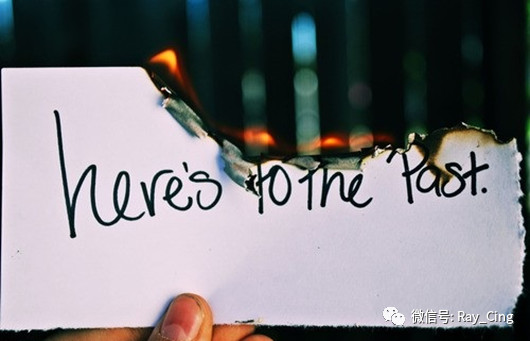 here's to the Past.
微信号: Ray_Cing